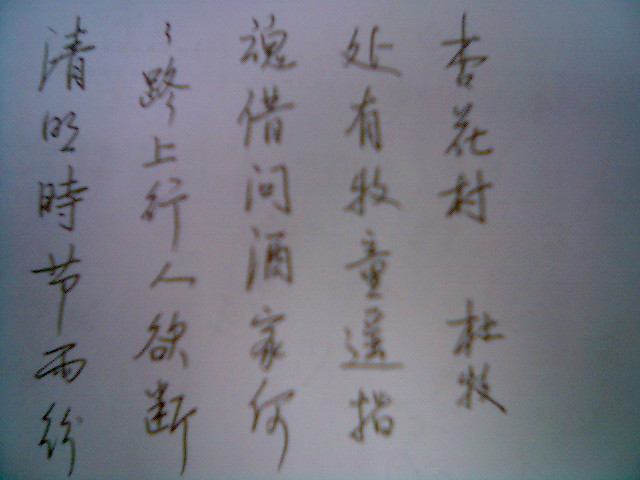 清明時节雨纷
〻路上行人欲断
魂借问酒家何
处有牧童遥指
杏花村 杜牧